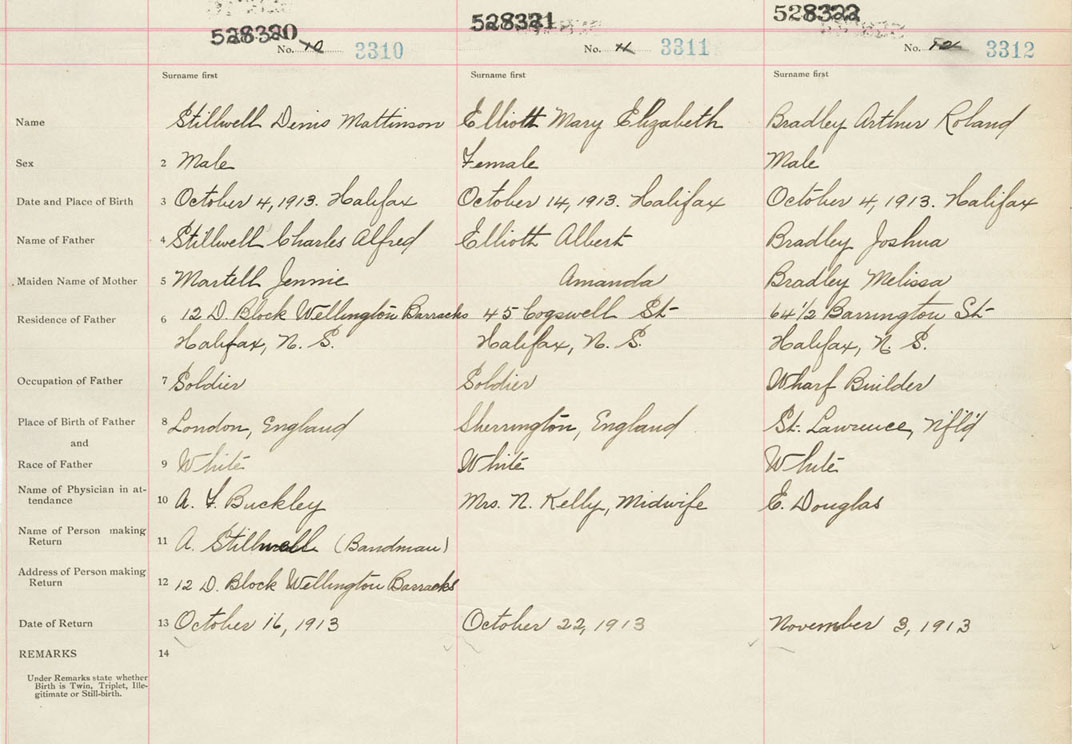 528320 528321 528322
No. 10 3310 No. 11 3311 No. 12 3312
Surname first Surname first Surname first
Name Stillwell Denis Mattinson Elliott Mary Elizabeth Bradley Arthur Roland
Sex 2 Male Female Male
Date and Place of Birth 3 October 4, 1913. Halifax October 14, 1913. Halifax October 4, 1913. Halifax
Name of Father 4 Stillwell Charles Alfred Elliott Albert Bradley Joshua
Maiden Name of Mother 5 Martell Jennie Amanda Bradley Melissa
Residence of Father 6 12 D. Block Wellington Barracks 45 Cogswell St 64 1/2 Barrington St
Halifax, N. S. Halifax, N. S. Halifax, N. S.
Occupation of Father 7 Soldier Soldier Wharf Builder
Place of Birth of Father 8 London, England Sherrington, England St. Lawrence, Nfl'd
and
Race of Father 9 White White White
Name of Physician in at-
tendance 10 A. F. Buckley Mrs. N. Kelly, Midwife E. Douglas
Name of Person making
Return 11 A. Stillwell (Bandman)
Address of Person making
Return 12 12 D. Block Wellington Barracks
Date of Return 13 October 16, 1913 October 22, 1913 November 3, 1913
REMARKS 14
Under Remarks state whether
Birth is Twin, Triplet, Ille-
gitimate or Still-birth.